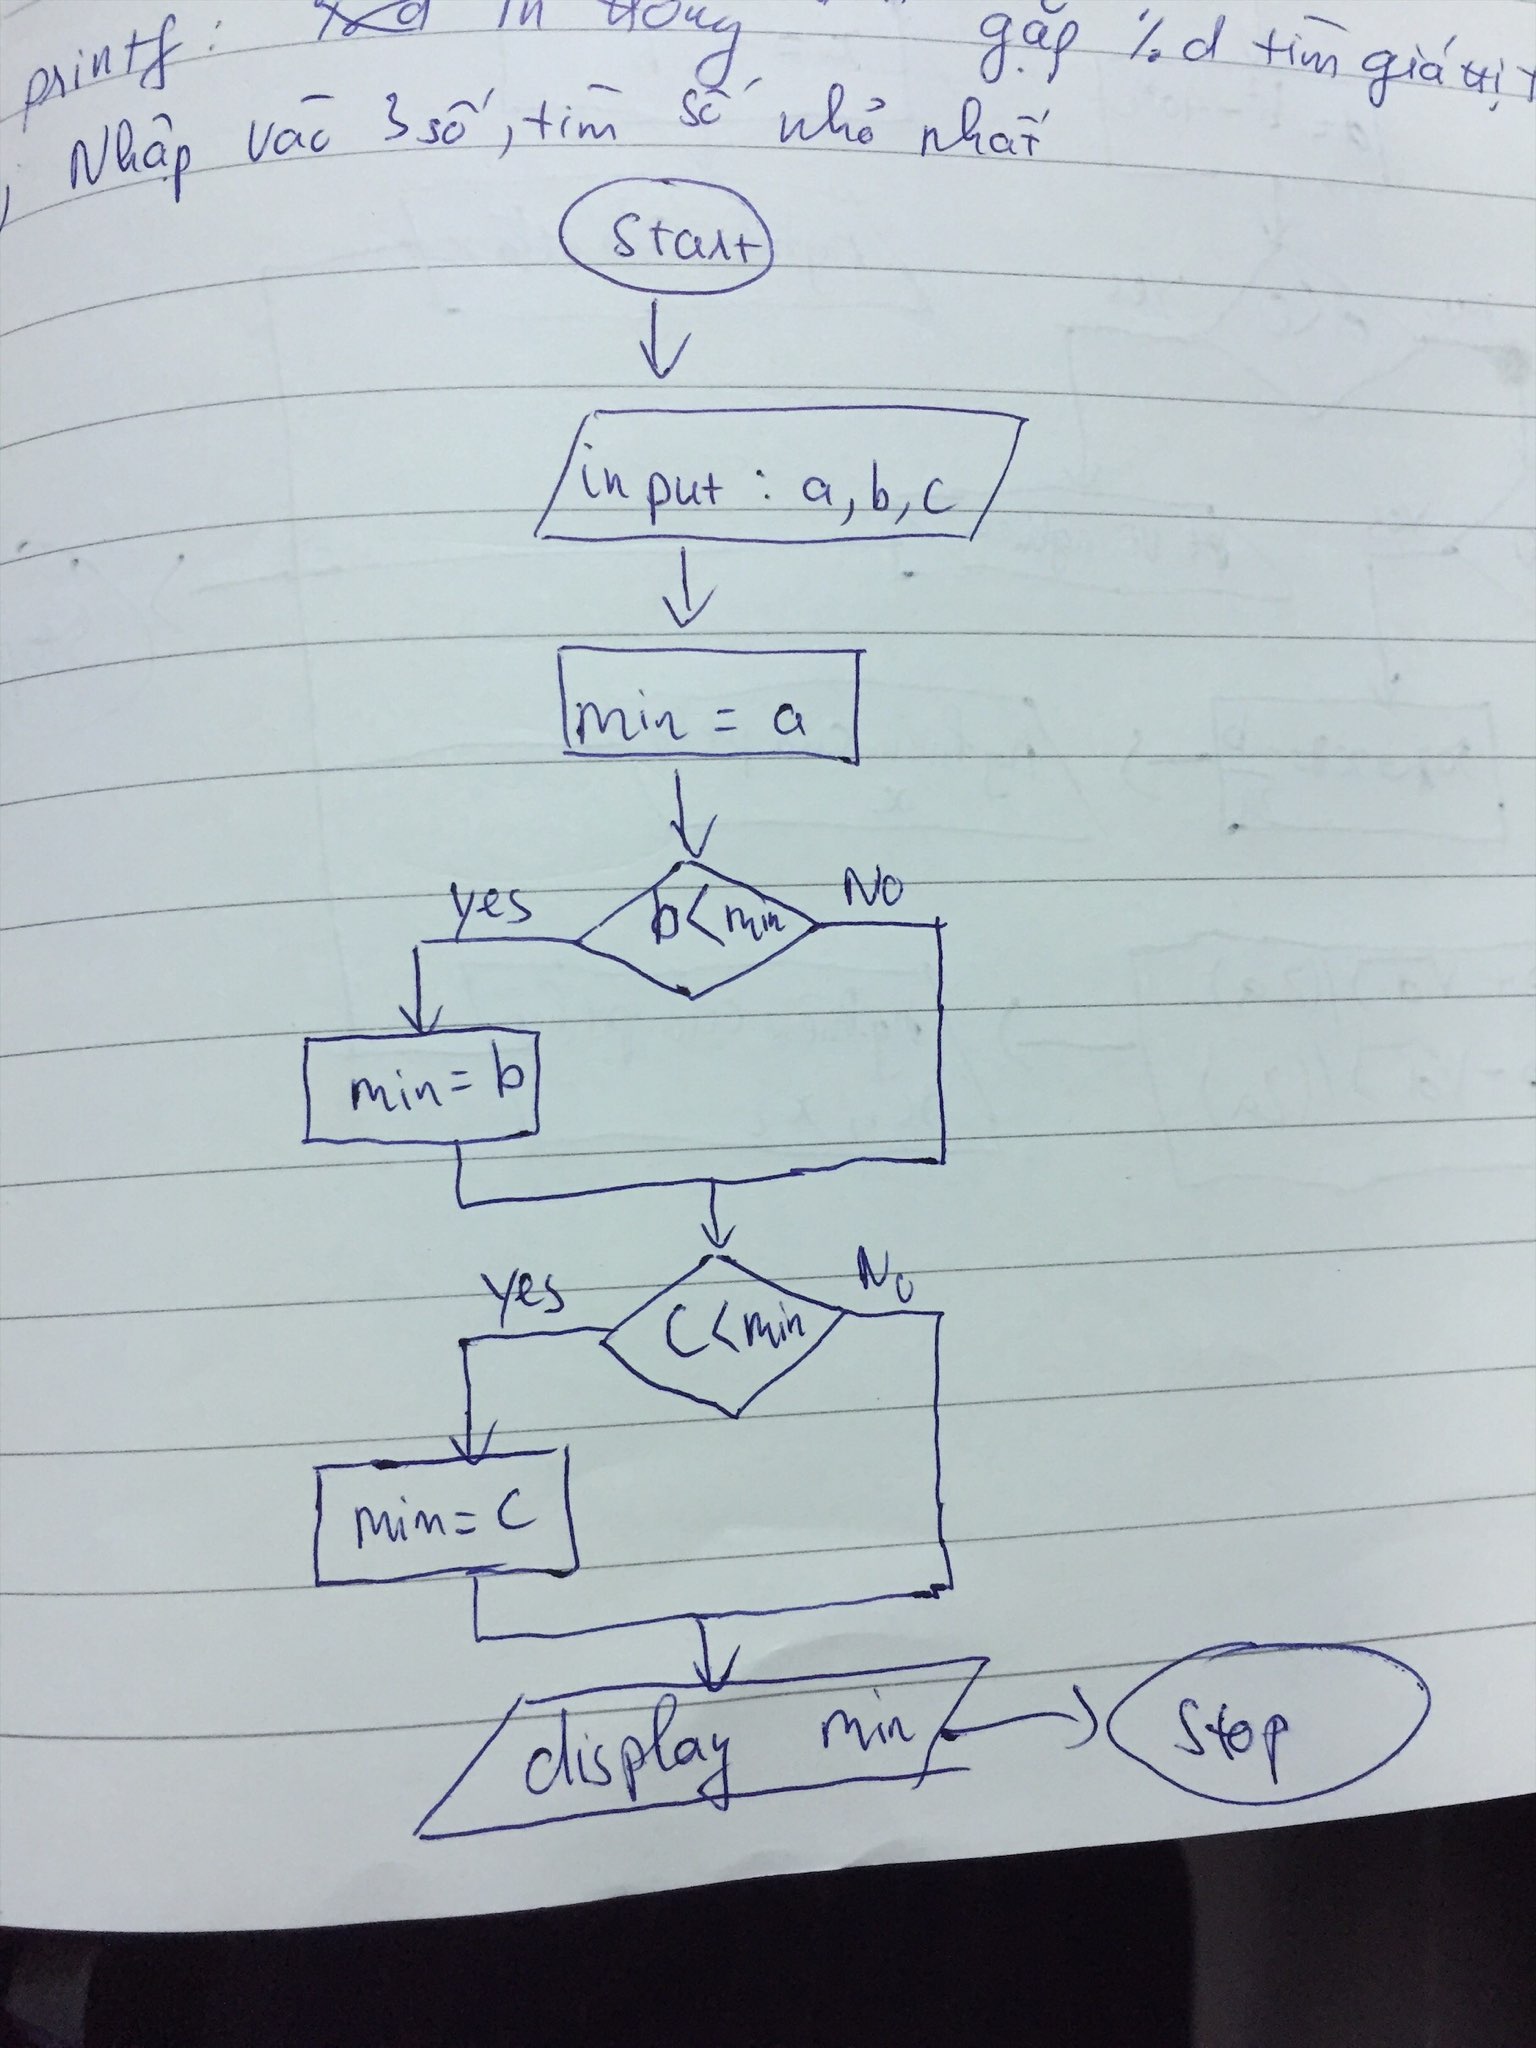 printf: in gặp %d tìm giá trị
, Nhập vào 3 số, tìm số nhỏ nhất
Start
input : a, b, c
min = a
yes b<min No
min = b
yes c<min No
min = c
display min
Stop